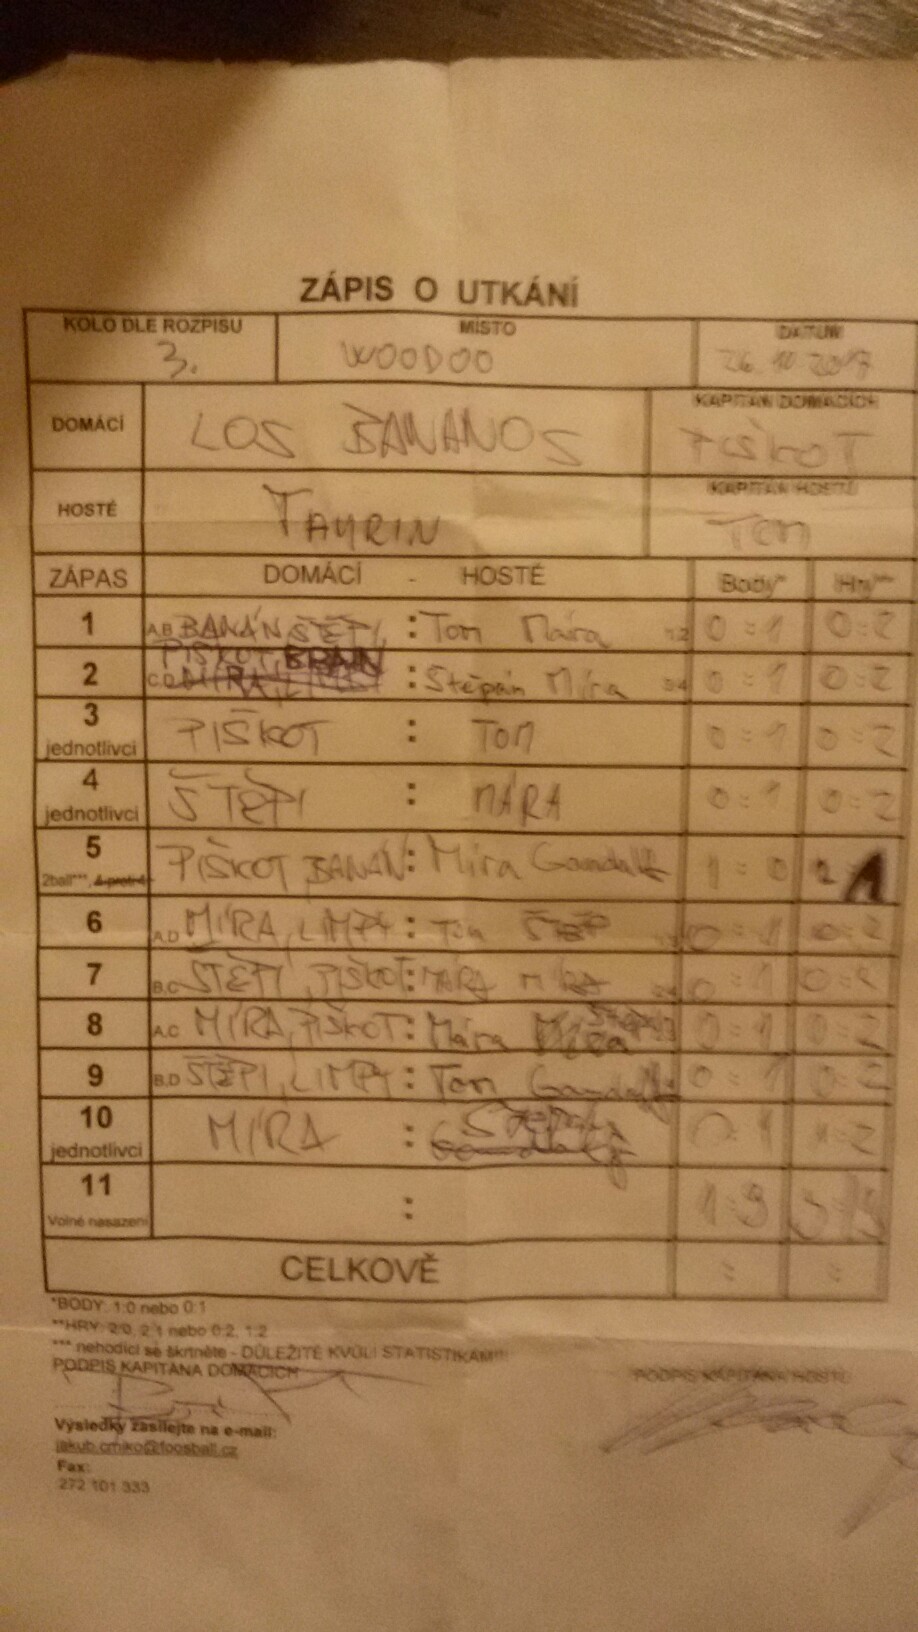 ZÁPIS O UTKÁNÍ
KOLO DLE ROZPISU MÍSTO DATUM
3. WOODOO 26. 10. 2017
DOMÁCÍ LOS BANANOS KAPITÁN DOMÁCÍCH
PIŠKOT
HOSTÉ TAYRIN KAPITÁN HOSTŮ
TOM
ZÁPAS DOMÁCÍ - HOSTÉ Body* Hry**
1 A,B BANÁN, ŠTĚPI : Tom Mára 1,2 0:1 0:2
PIŠKOT, BRAIN
2 C,D : Štěpán Míra 3,4 0:1 0:2
3 jednotlivci PIŠKOT : TOM 0:1 0:2
4 jednotlivci ŠTĚPI : MÁRA 0:1 0:2
5 2ball***, 4 proti 4 PIŠKOT, BANÁN : Míra Gandalf 1:0 2 1
6 A,D MÍRA, LIMPY : Tom ŠTĚP 0:1 0:2
7 B,C ŠTĚPI, PIŠKOT : MÁRA MÍRA 2,4 0:1 0:2
8 A,C MÍRA, PIŠKOT : Mára Štěpán 0:1 0:2
9 B,D ŠTĚPI, LIMPY : Tom Gandalf 0:1 0:2
10 jednotlivci MÍRA : Štěpán 0:1 1:2
11 Volné nasazení : 1:9 3:
CELKOVĚ : :
*BODY: 1:0 nebo 0:1
**HRY: 2:0, 2:1 nebo 0:2, 1:2
*** nehodící se škrtněte - DŮLEŽITÉ KVŮLI STATISTIKÁM!!!
PODPIS KAPITÁNA DOMÁCÍCH PODPIS KAPITÁNA HOSTŮ
Výsledky zasílejte na e-mail:
jakub.crnko@foosball.cz
Fax:
272 101 333